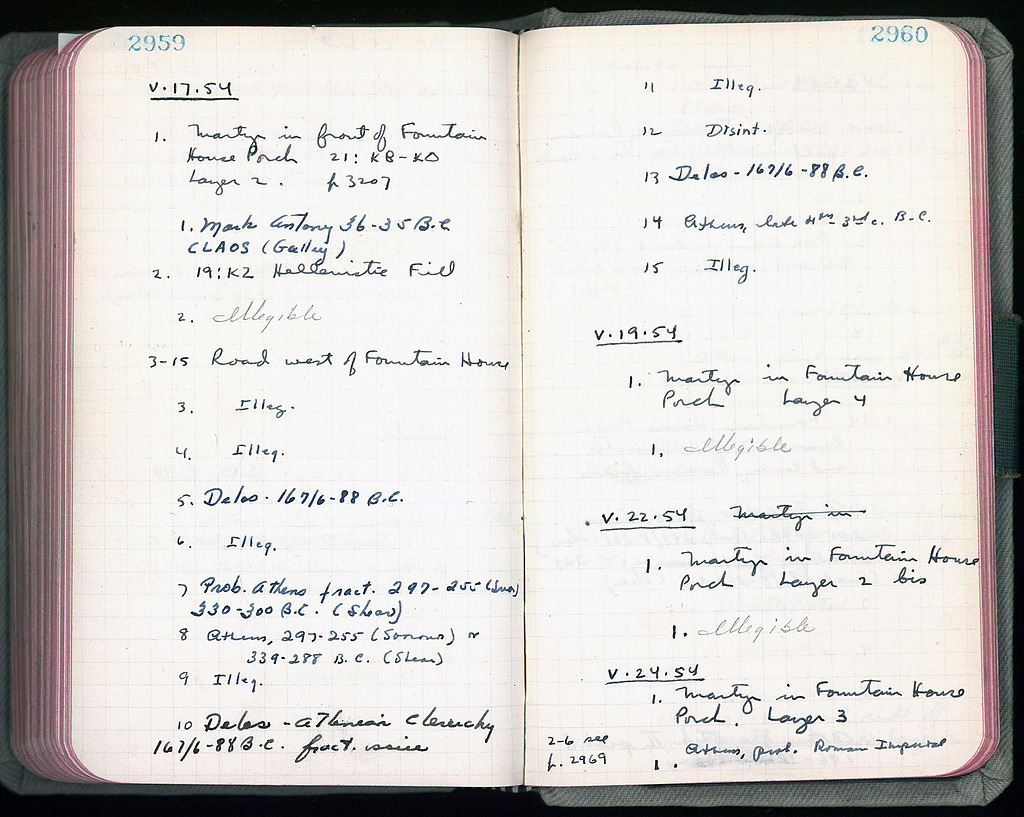 2959
V.17.54
1. Martyr in front of Fountain
House Porch 21: KB-KD
Layer 2. p. 3207
1. Mark Antony 36-35 B.C
CLAOS (Galley)
2. 19:KZ Hellenistic Fill
2. Illegible
3-15 Road west of Fountain House
3. Illeg.
4. Illeg.
5. Delos - 167/6-88 B.C.
6. Illeg.
7 Prob. Athens fract. 297-255
330-300 B.C. (Shear)
8 Athens, 297-255 (Svoronos) or
339-288 B.C. (Shear)
9 Illeg.
10 Delos - Athenian Cleruchy
167/6-88 B.C. fract. issue
2960
11 Illeg.
12 Disint.
13 Delos - 167/6 -88 B.C.
14 Athens, late 4th - 3rd c. B.C.
15 Illeg.
V.19.54
1. Martyr in Fountain House
Porch Layer 4
1. Illegible
V.22.54 Martyr in
1. Martyr in Fountain House
Porch Layer 2 bis
1. Illegible
V.24.54
1. Martyr in Fountain House
Porch. Layer 3
2-6 see
p. 2969
1. Athens, prob. Roman Imperial